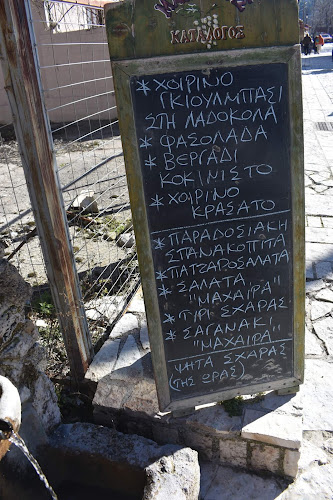 ΚΑΤΑΛΟΓΟΣ
* ΧΟΙΡΙΝΟ
ΓΚΙΟΥΛΜΠΑΣΙ
ΣΤΗ ΛΑΔΟΚΟΛΑ
* ΦΑΣΟΛΑΔΑ
* ΒΕΡΓΑΔΙ
ΚΟΚΙΝΙΣΤΟ
* ΧΟΙΡΙΝΟ
ΚΡΑΣΑΤΟ
* ΠΑΡΑΔΟΣΙΑΚΗ
ΣΠΑΝΑΚΟΠΙΤΑ
* ΠΑΤΖΑΡΟΣΑΛΑΤΑ
* ΣΑΛΑΤΑ
"ΜΑΧΑΙΡΑ"
* ΤΙΡΙ ΣΧΑΡΑΣ
* ΣΑΓΑΝΑΚΙ
"ΜΑΧΑΙΡΑ"
ΨΗΤΑ ΣΧΑΡΑΣ
(ΤΗΣ ΩΡΑΣ)